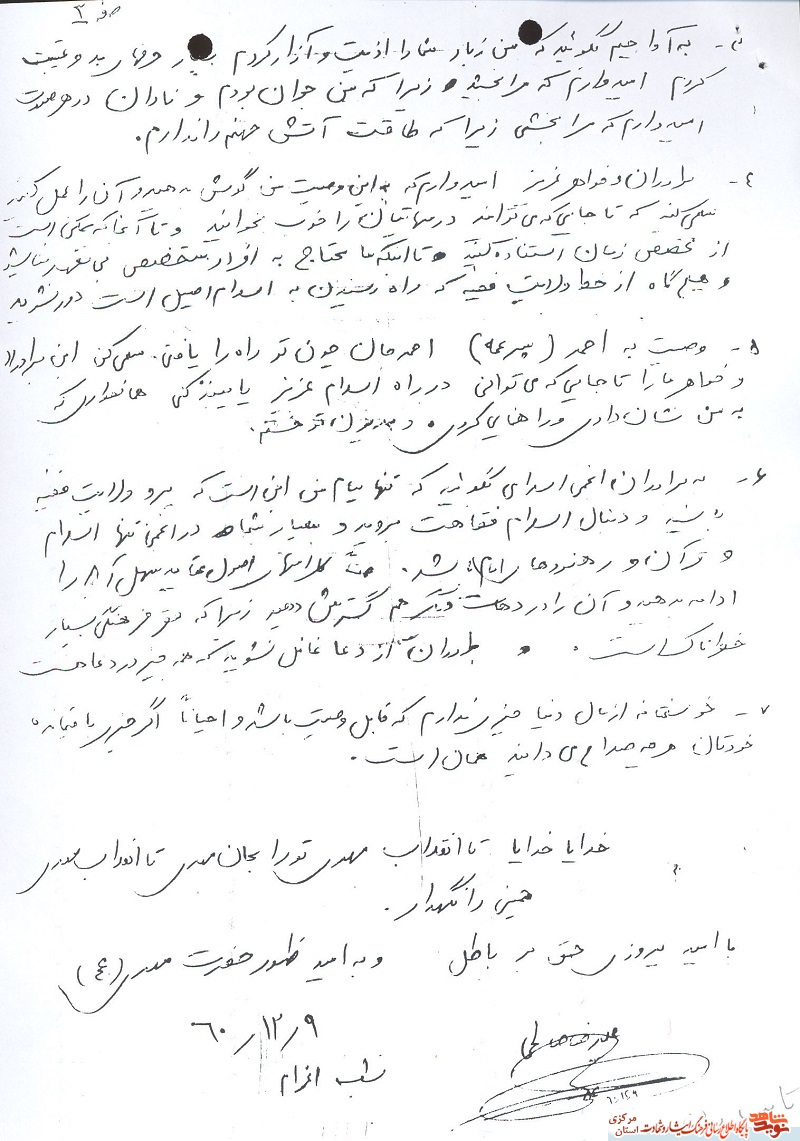 صفحه ۲
۳- به آوا جیم بگوئید که من زیاد شما را اذیت و آزار کردم بسیار و فحاس بد و غیبت
کردم امیدوارم که مرا ببخشید زیرا که من جوان بودم و نادان در هر صورت
امیدوارم که مرا ببخشی زیرا که طاقت آتش جهنم را ندارم.
۴- برادران و خواهر عزیز امیدوارم که به این وصیت من گوش دهید و آن را عمل کنید
سعی کنید که تا جایی که می توانید درسهایتان را خوب بخوانید و تا آنجا که ممکن است
از تخصص زمان استفاده کنید تا اینکه ما محتاج به افراد متخصص بی تعهد نباشید
و هیچ گاه از خط ولایت فقیه که راه رسیدن به اسلام اصیل است دور نشوید
۵- وصیت به احمد (پسر عمه) احمد جان چون تو راه را یافتی. سعی کن این برادران
و خواهر ما را تا جایی که می توانی در راه اسلام عزیز یا کنی همانطوری که
به من نشان دادی و راهنمایی کردی و مدیون تو هستم.
۶- به برادران انجمن اسلامی بگوئید که تنها پیام من این است که پیرو ولایت فقیه
باشید و دنبال اسلام فقاهت بروید و معیار شما در انجمن تنها اسلام
و قرآن و رهنمودهای امام باشد. کلاسهای اصول عقاید سهل آباد را
ادامه بدهید و آن را در دهات دیگر هم گسترش دهید زیرا که فقر فرهنگی بسیار
خطرناک است. برادران از دعا غافل نشوید که همه چیز در دعا هست
۷- خوشبختانه از مال دنیا چیزی ندارم که قابل وصیت باشد و احیاناً اگر چیزی باقیمانده
خودتان هر چه صلاح می دانید همان است.
خدایا خدایا تا انقلاب مهدی تو را بجان مهدی تا انقلاب مهدی
خمینی را نگهدار.
با امید پیروزی حق بر باطل و به امید ظهور حضرت مهدی (عج)
۶۰/۱۲/۹
علیرضا صالحی
شب اعزام
۶۰/۱۲/۹
نوید شاهد
پایگاه اطلاع رسانی فرهنگ ایثار و شهادت
استان مرکزی